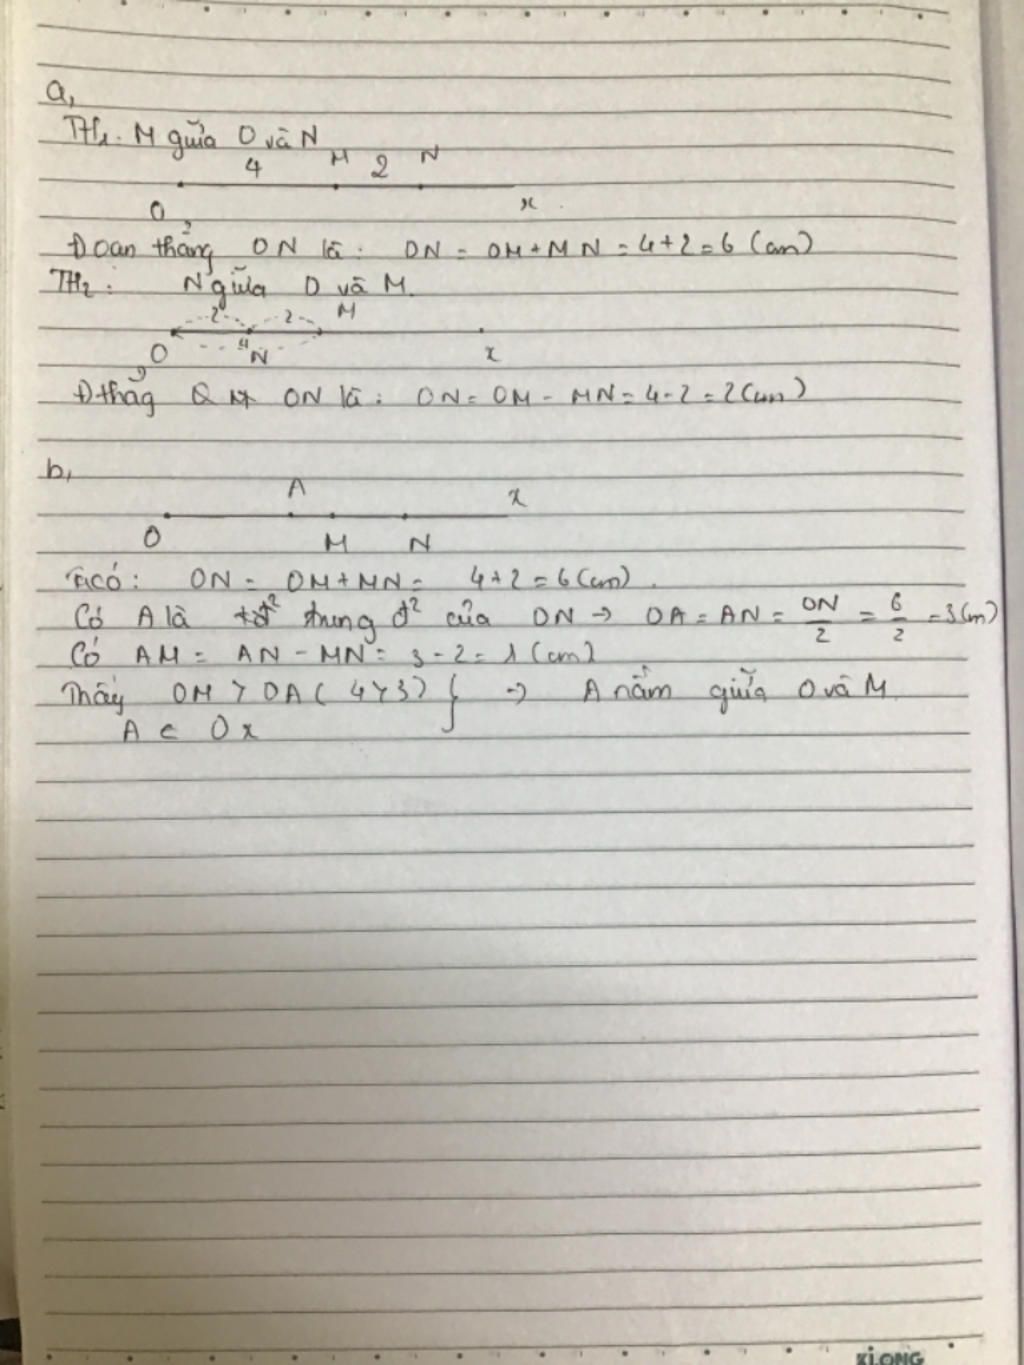 a,
TH1. M giữa O và N
4 M 2 N
O x
Đoạn thẳng ON là: ON = OM + MN = 4+2 = 6 (cm)
TH2: N giữa O và M
2 2 M
O 4 N x
Đthẳg ON là: ON = OM - MN = 4-2 = 2 (cm)
b,
A x
O M N
Ta có: ON = OM + MN = 4+2 = 6 (cm).
Có A là trung đ² của ON → OA = AN = ON/2 = 6/2 = 3(cm)
Có AM = AN - MN = 3-2 = 1 (cm)
Thấy OM > OA (4>3) } → A nằm giữa O và M
A ∈ Ox
KLONG